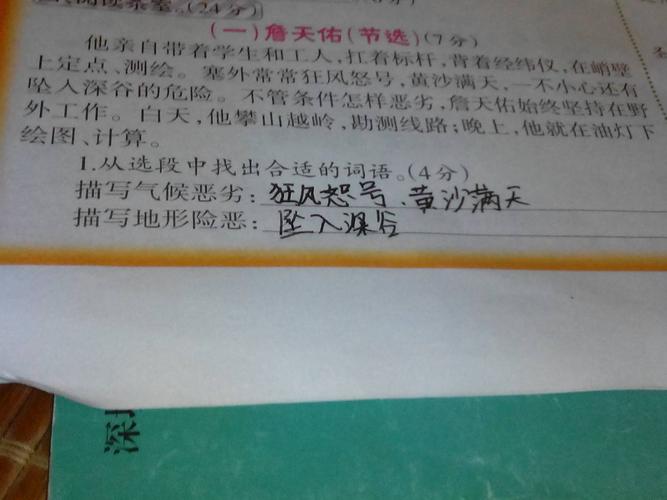 阅读茶室。(24分)
(一)詹天佑(节选)(7分)
他亲自带着学生和工人,扛着标杆,背着经纬仪,在峭壁
上定点、测绘。塞外常常狂风怒号,黄沙满天,一不小心还有
坠入深谷的危险。不管条件怎样恶劣,詹天佑始终坚持在野
外工作。白天,他攀山越岭,勘测线路;晚上,他就在油灯下
绘图、计算。
1.从选段中找出合适的词语。(4分)
描写气候恶劣:狂风怒号、黄沙满天
描写地形险恶:坠入深谷
深